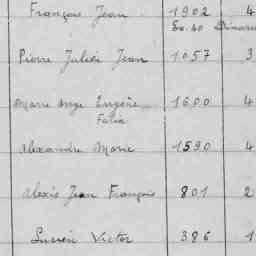 François Jean 1902 4
Ex. 40 Dinard
Pierre Julien Jean 1057 3
Marie Ange Eugène 1600 4
Faria
Alexandre Marie 1590 4
Alexis Jean François 801 2
Lucien Victor 386 1